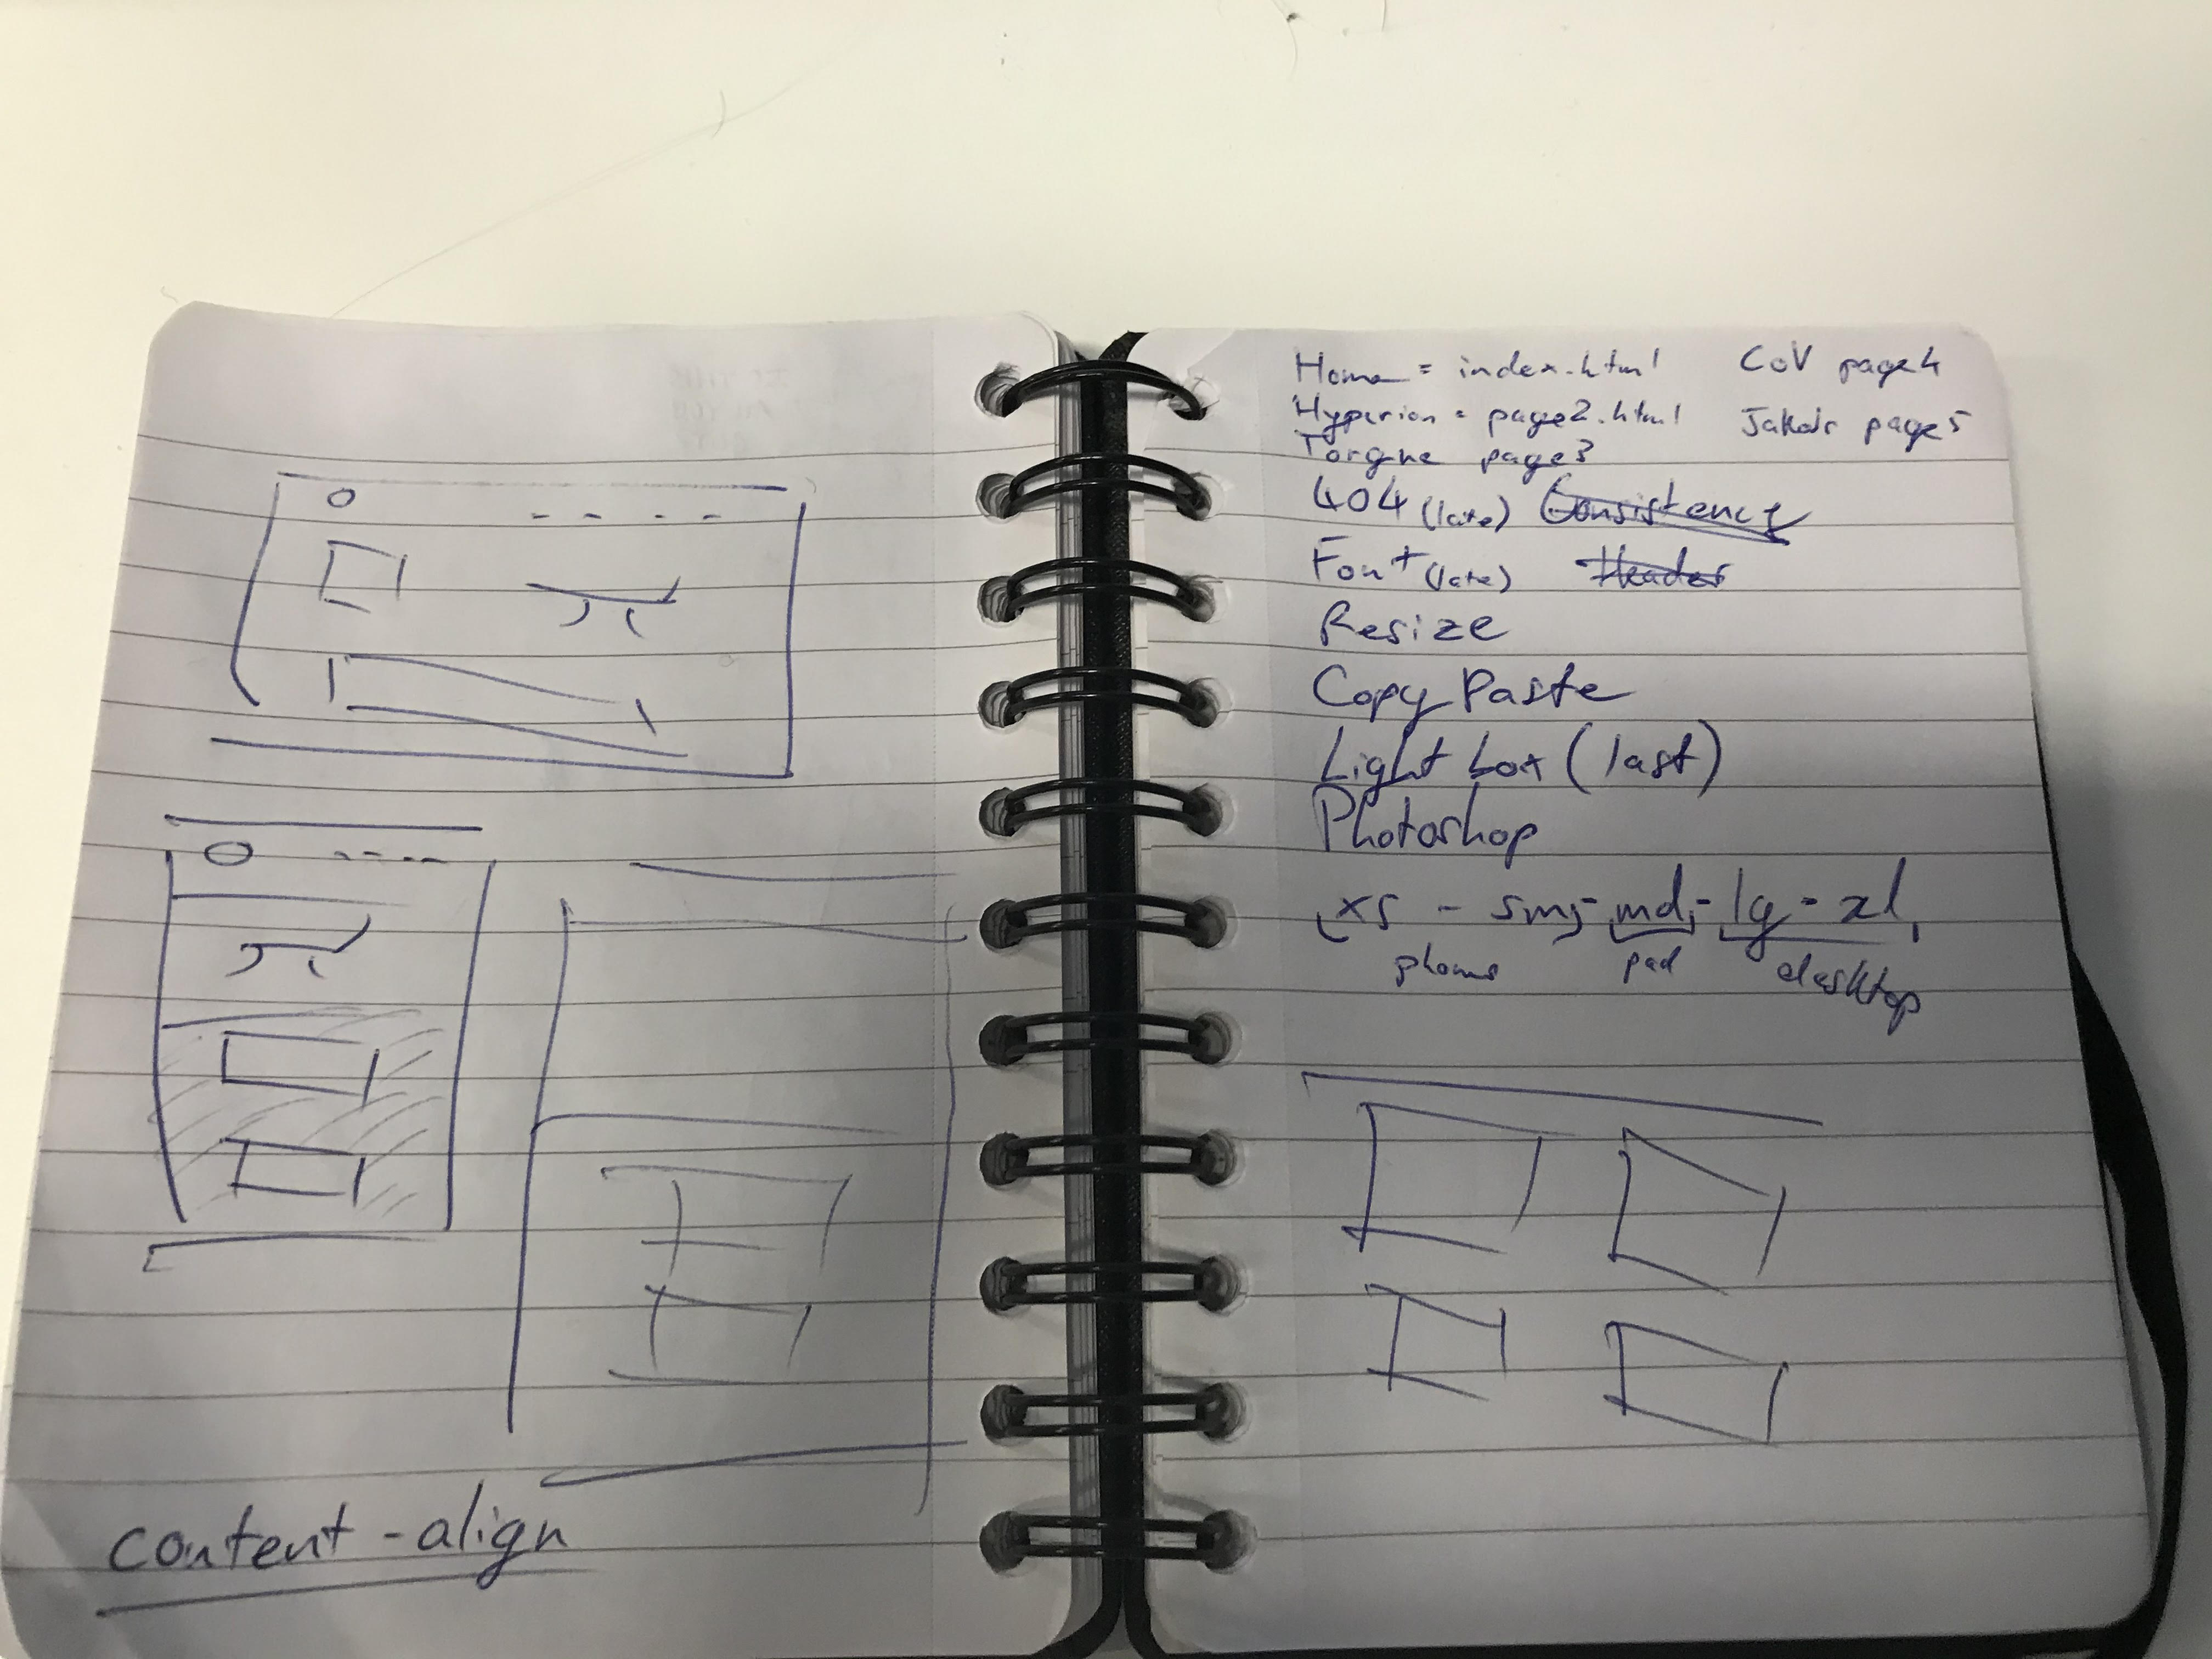 content-align
Home = index.html CoV page4
Hyperion = page2.html Jakobs page5
Torgue page3
404 (late) Consistency
Font (late) Header
Resize
Copy Paste
Light box (last)
Photoshop
xs - sm - md - lg - xl
phone pad desktop